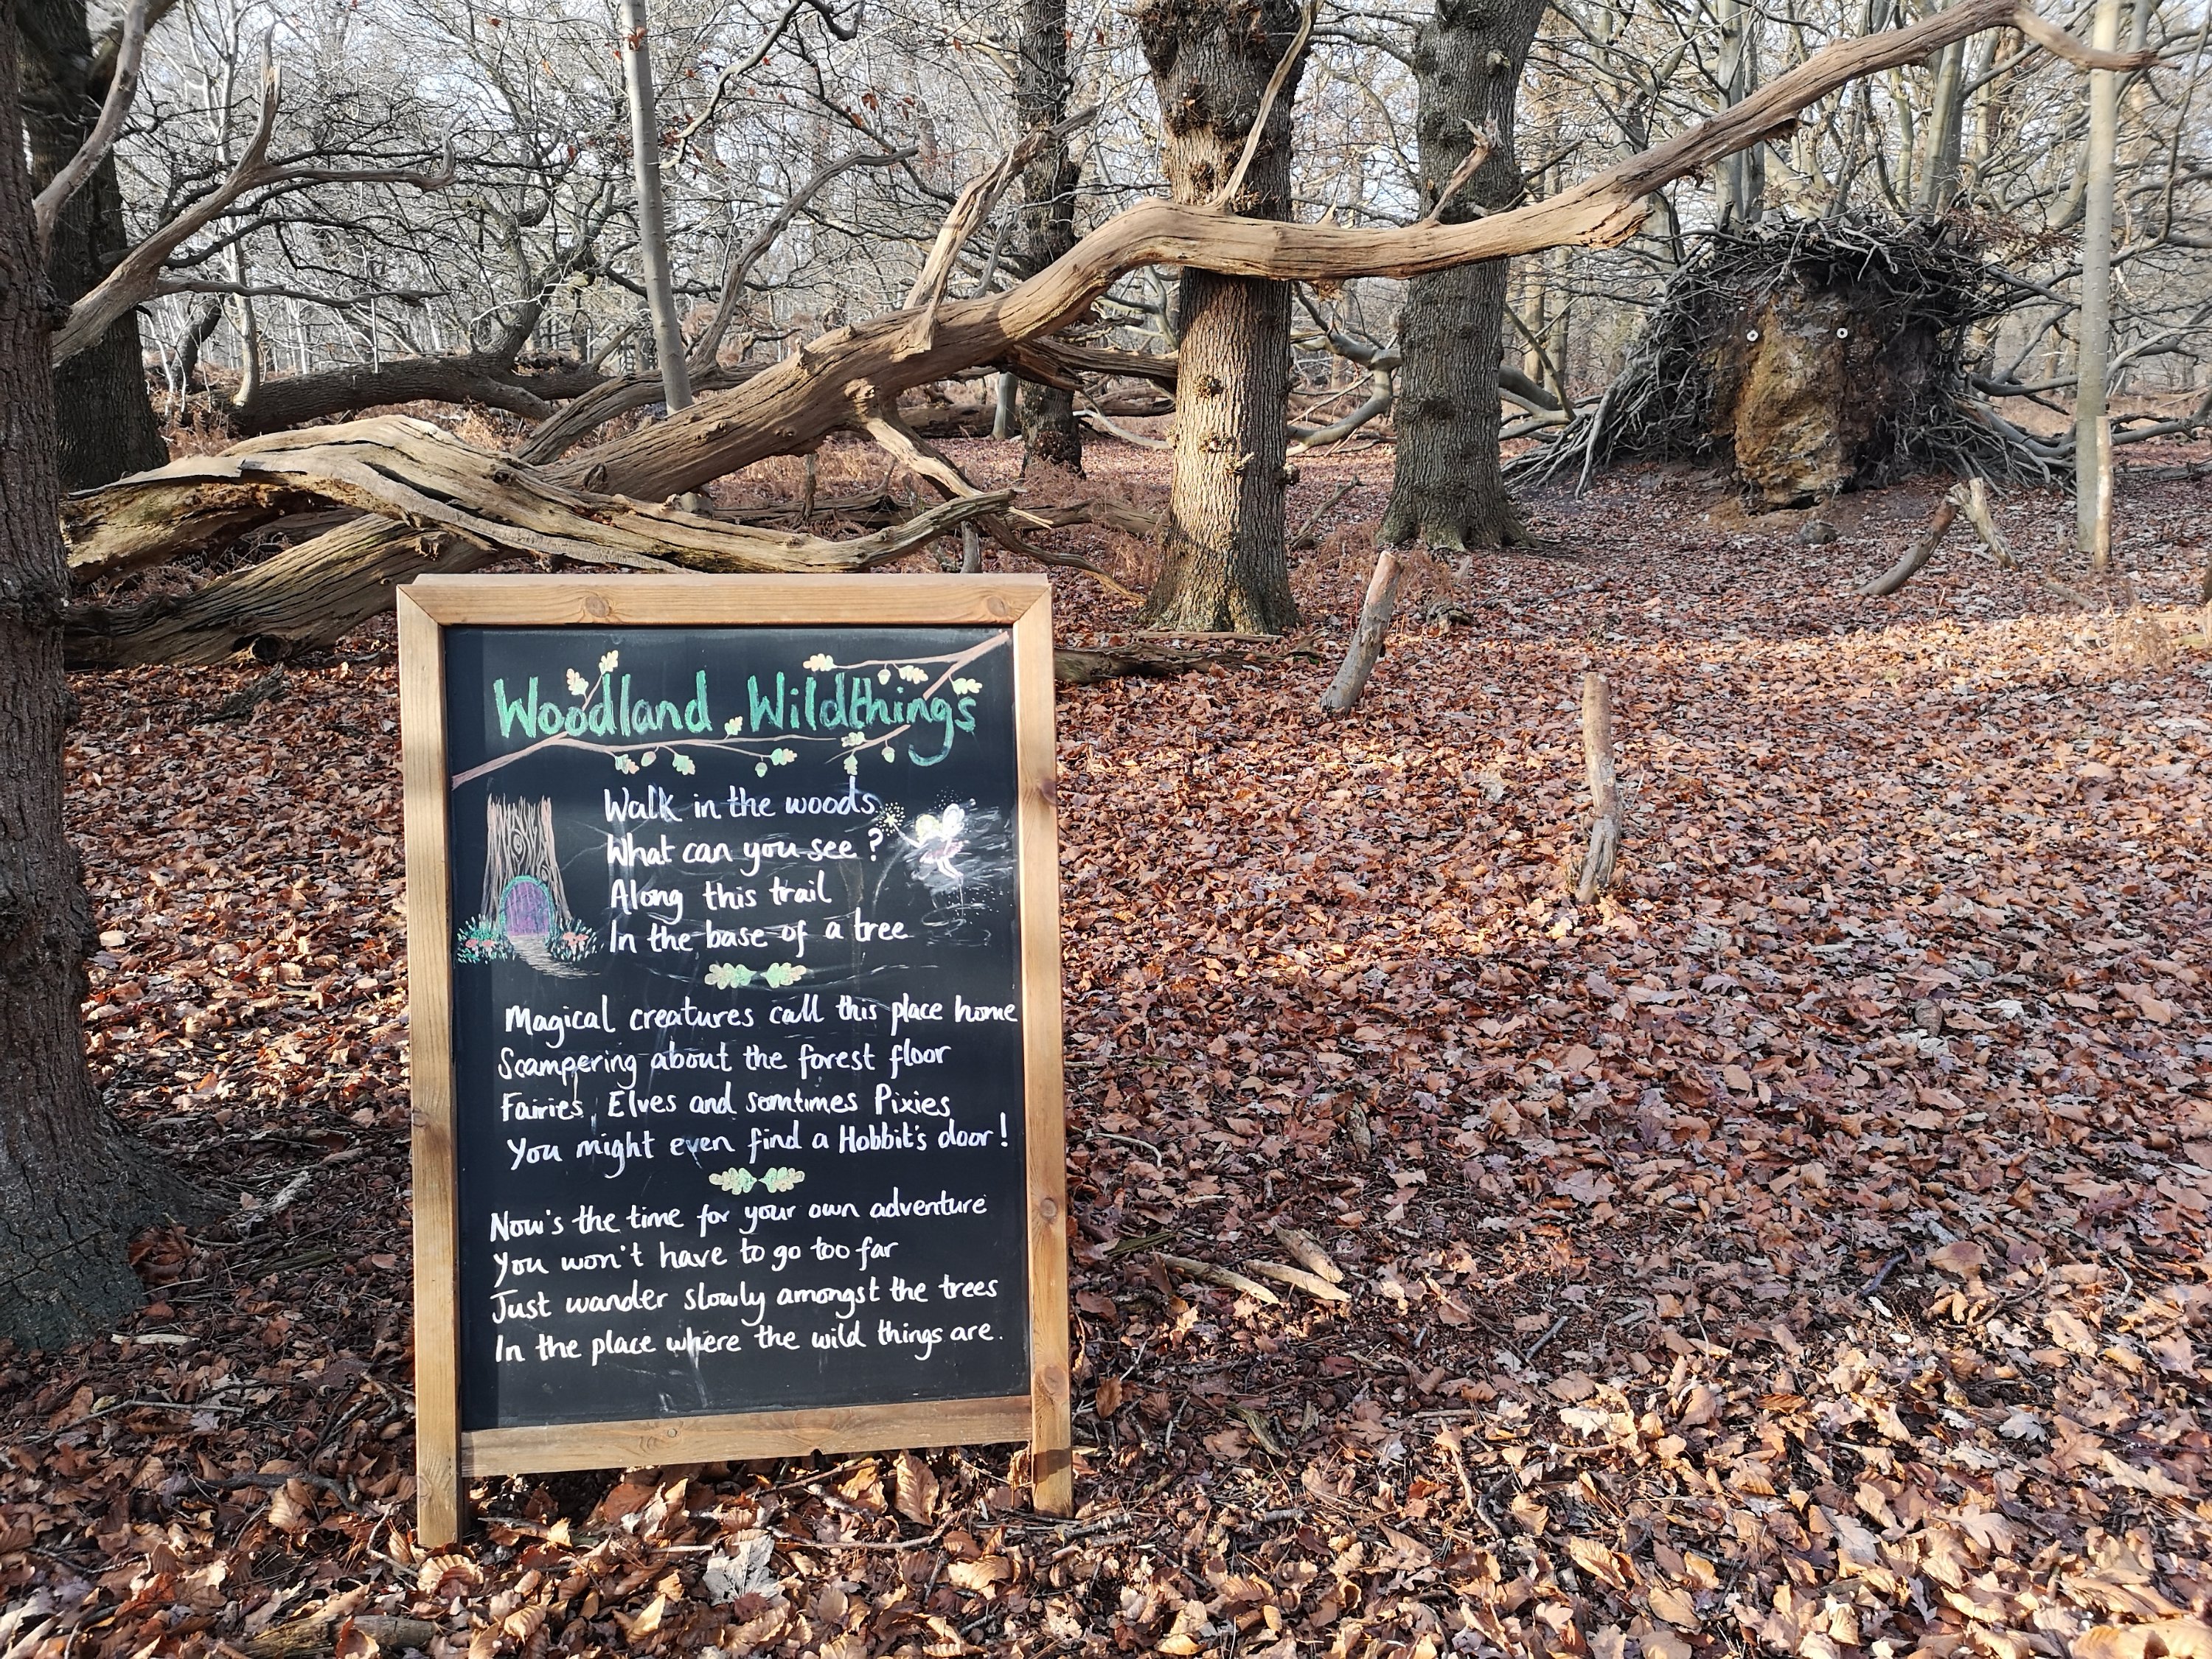 Woodland Wildthings
Walk in the woods
What can you see?
Along this trail
In the base of a tree
Magical creatures call this place home
Scampering about the forest floor
Fairies, Elves and somtimes Pixies
You might even find a Hobbit's door!
Now's the time for your own adventure
You won't have to go too far
Just wander slowly amongst the trees
In the place where the wild things are.